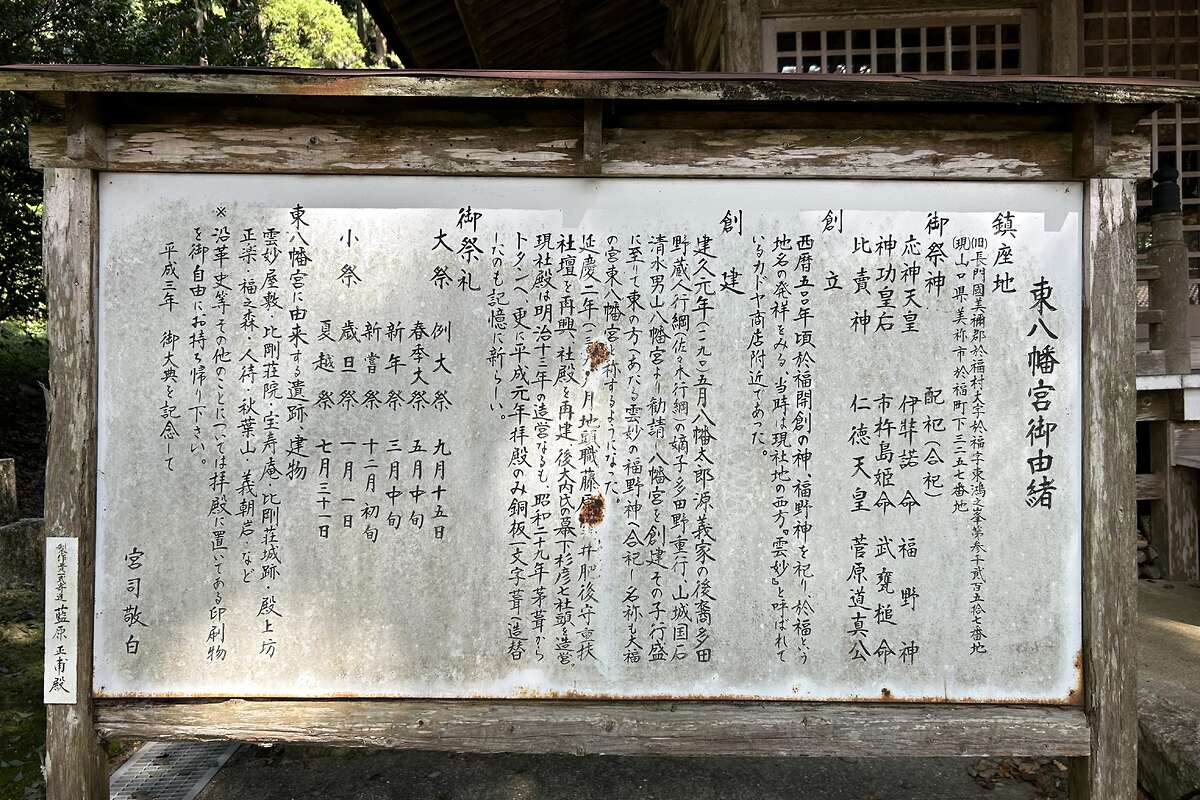 東八幡宮御由緒
鎮座地
(旧)長門國美禰郡於福村大字於福字東鴻之峯第参千貳百五拾七番地
(現)山口県美祢市於福町下三二五七番地
御祭神 配祀(合祀)
応神天皇 伊弉諾命 福野神
神功皇后 市杵島姫命 武甕槌命
比賣神 仁徳天皇 菅原道真公
創立
西暦五〇〇年頃於福開創の神、福野神を祀り、於福という
地名の発祥をみる。当時は現社地の西方『雲妙』と呼ばれて
いるカドヤ商店附近であった。
創建
建久元年(一一九〇)五月八幡太郎源義家の後裔多田
野蔵人行綱佐々木行綱の嫡子多田野重行、山城国石
清水男山八幡宮より勧請、八幡宮を創建、その子行盛
に至りて東の方へあたる雲妙の福野神へ合祀し名称も大福
の宮東八幡宮と称するようになった。
延慶二年(一三 月地頭職藤原 井肥後守重扶
社壇を再興、社殿を再建、後大内氏の幕下杉彦七社頭を造営。
現社殿は明治十三年の造営なるも、昭和二九年茅葺から
トタンへ、更に平成元年拝殿のみ銅板一文字葺へ造替
したのも記憶に新らしい。
御祭礼
大祭 例大祭 九月十五日
春季大祭 五月中旬
新年祭 三月中旬
新嘗祭 十二月初旬
小祭 歳旦祭 一月一日
夏越祭 七月三十一日
東八幡宮に由来する遺跡、建物
雲妙屋敷・比剛荘院・宝寿庵・比剛荘城跡・殿上坊
正楽・福之森・人待・秋葉山・義朝岩・など
※沿革史等その他のことについては拝殿に置いてある印刷物
を御自由にお持ち帰り下さい。
平成三年 御大典を記念して
宮司敬白
藍原正甫殿